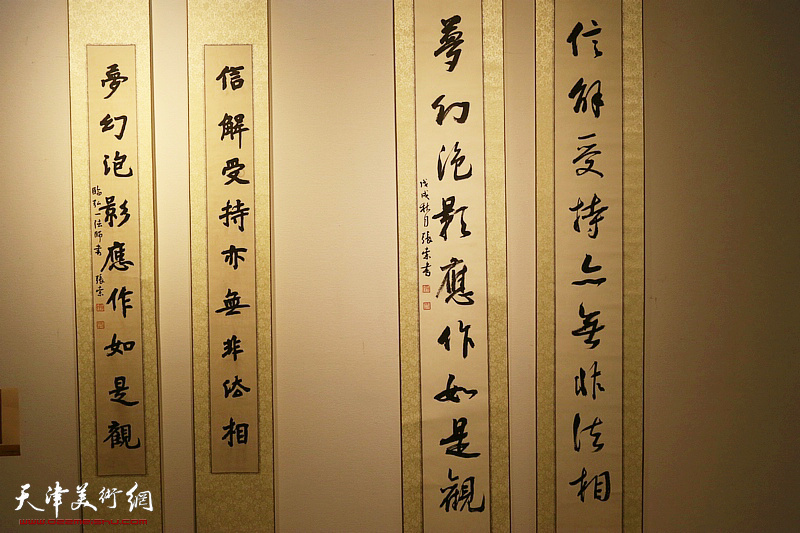 信解受持亦無非法相
夢幻泡影應作如是觀
戊戌秋月張宗書
信解受持亦無非法相
夢幻泡影應作如是觀
臨弘一法師書 張宗
天津美術網